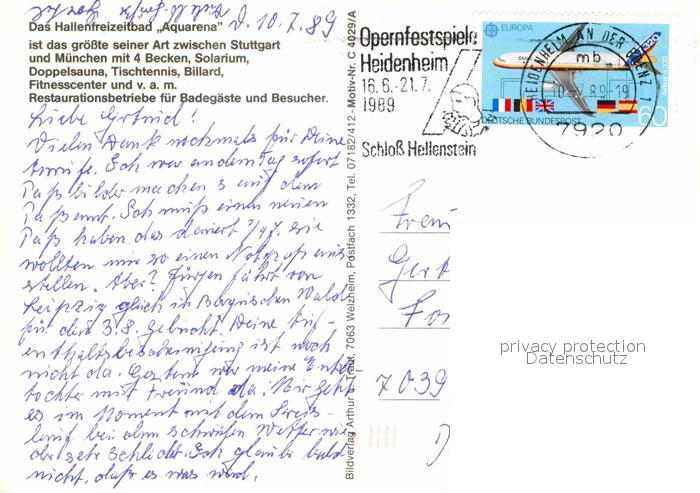 D. 10.7.89
Das Hallenfreizeitbad „Aquarena"
ist das größte seiner Art zwischen Stuttgart
und München mit 4 Becken, Solarium,
Doppelsauna, Tischtennis, Billard,
Fitnesscenter und v. a. m.
Restaurationsbetriebe für Badegäste und Besucher.
Liebe Gertrud!
Vielen Dank nochmals für Deine
Anrufe. Ich war andern Tag sofort
Paßbilder machen s auf dem
Paßamt. Ich muß einen neuen
Paß haben, das dauert sie
wollten mir so einen Notpaß aus
stellen. Aber? Jürgen fährt von
Leipzig gleich in Wald
für den 3.8. gebucht. Deine Auf-
enthaltsbescheinigung ist noch
nicht da. Gestern war meine Enkel
tochter mit Freund da. Mir geht
es im Moment mit dem Kreis-
lauf bei dem schwülen Wetter wie
der sehr schlecht. Ich glaube bald
nicht, daß es was wird.
Bildverlag Arthur Traut, 7063 Welzheim, Postfach 1332, Tel. 07182/412 - Motiv-Nr. C 4029/A
Opernfestspiele
Heidenheim
16.6.-21.7.
1989
Schloß Hellenstein
HEIDENHEIM AN DER BRENZ 1
mb
10.-7.89-19
7920
EUROPA
DEUTSCHE BUNDESPOST
60
Frau
Gert
7039
privacy protection
Datenschutz